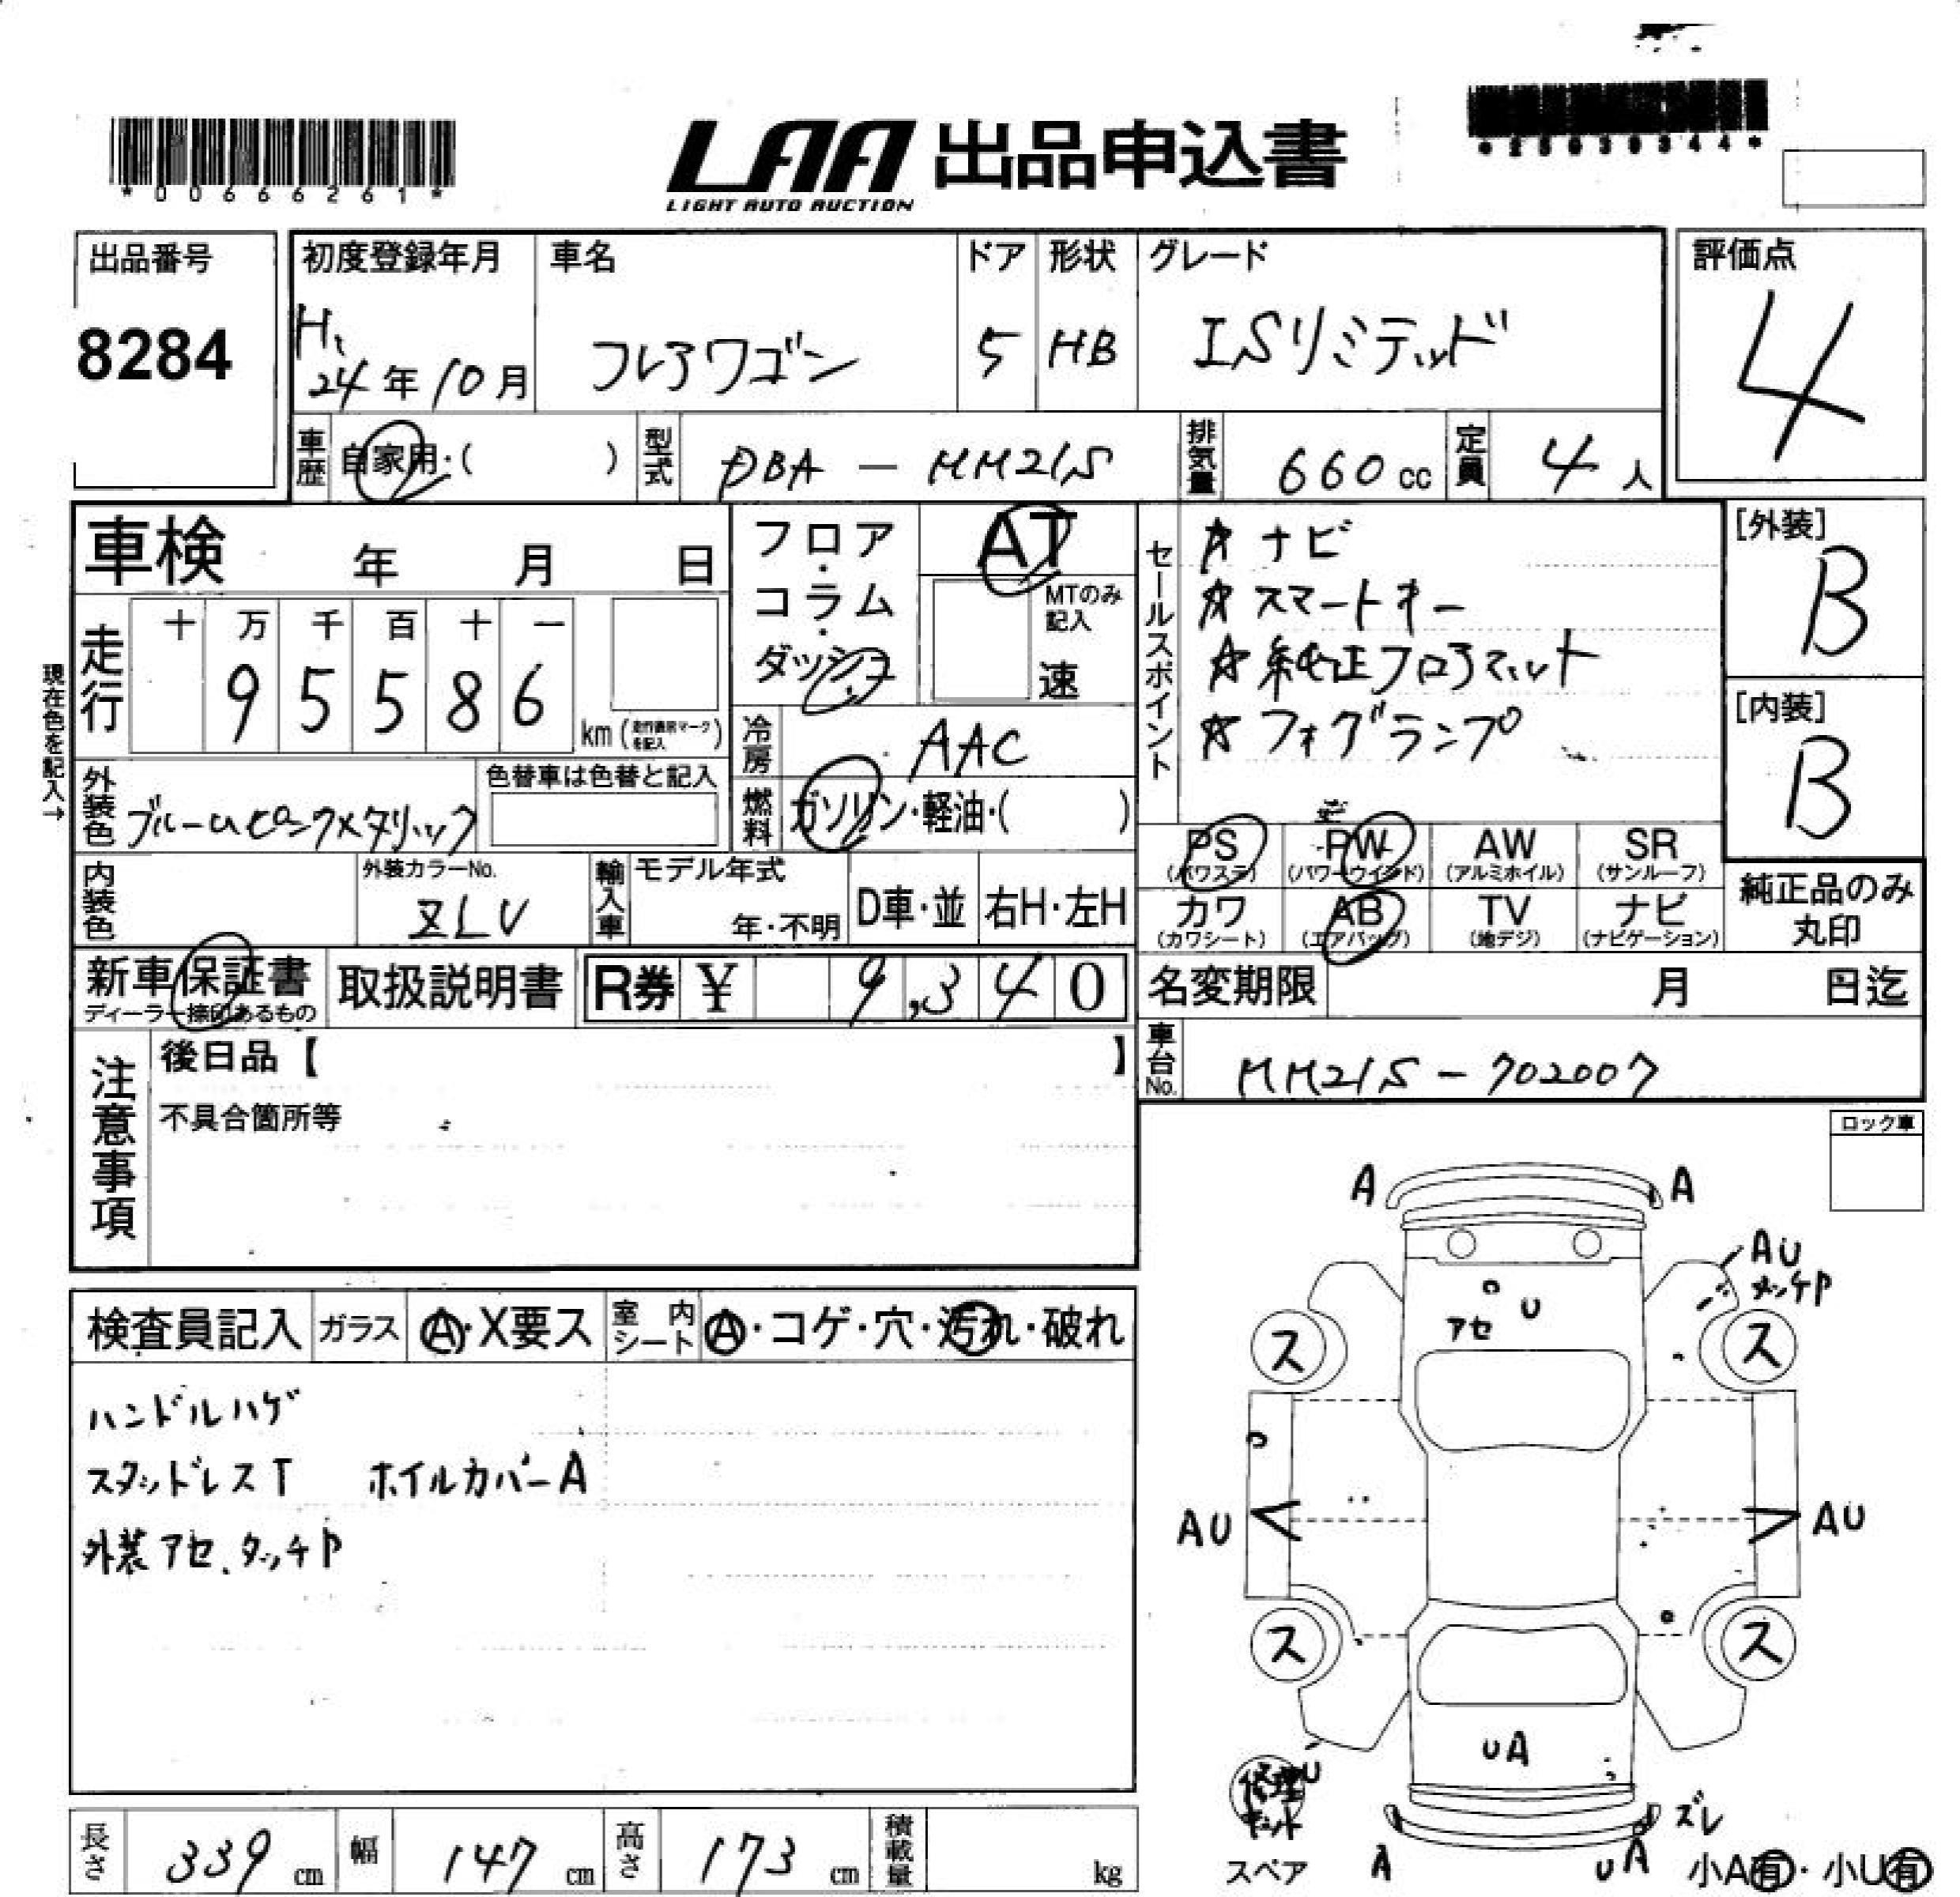 *00666261*
LAA 出品申込書
LIGHT AUTO AUCTION
*25030344*
出品番号
8284
初度登録年月
H.
24年10月
車名
フレアワゴン
ドア
5
形状
HB
グレード
ISリミテッド
評価点
4
車歴
自家用・( )
型式
DBA - MM21S
排気量
660 cc
定員
4 人
車検 年 月 日
フロア・コラム・ダッシュ
AT
MTのみ記入
速
セールスポイント
☆ナビ
☆スマートキー
☆純正フロアマット
☆フォグランプ
[外装]
B
[内装]
B
現在色を記入→
走行
十 万 千 百 十 一
9 5 5 8 6
km
冷房
AAC
燃料
ガソリン・軽油・( )
外装色
色替車は色替と記入
PS
(パワステ)
PW
(パワーウインド)
AW
(アルミホイル)
SR
(サンルーフ)
カワ
(カワシート)
AB
(エアバッグ)
TV
(地デジ)
ナビ
(ナビゲーション)
純正品のみ
丸印
内装色
外装カラーNo.
ZLV
輸入車
モデル年式
年・不明
D車・並
右H・左H
新車保証書
ディーラー捺印あるもの
取扱説明書
R券 ¥ 9,340
名変期限 月 日迄
車台No.
MM21S - 702007
注意事項
後日品【 】
不具合箇所等
ロック車
検査員記入
ガラス
A・X要ス
室内シート
A・コゲ・穴・汚れ・破れ
ハンドルハゲ
スタッドレスT ホイルカバーA
外装アセ、タッチP
A A
AU
タッチP
U
アセ
ス ス
AU AU
ス ス
UA
U
修理キット
スペア
ズレ
A
UA
小A有・小U有
長さ
339 cm
幅
147 cm
高さ
173 cm
積載量
kg